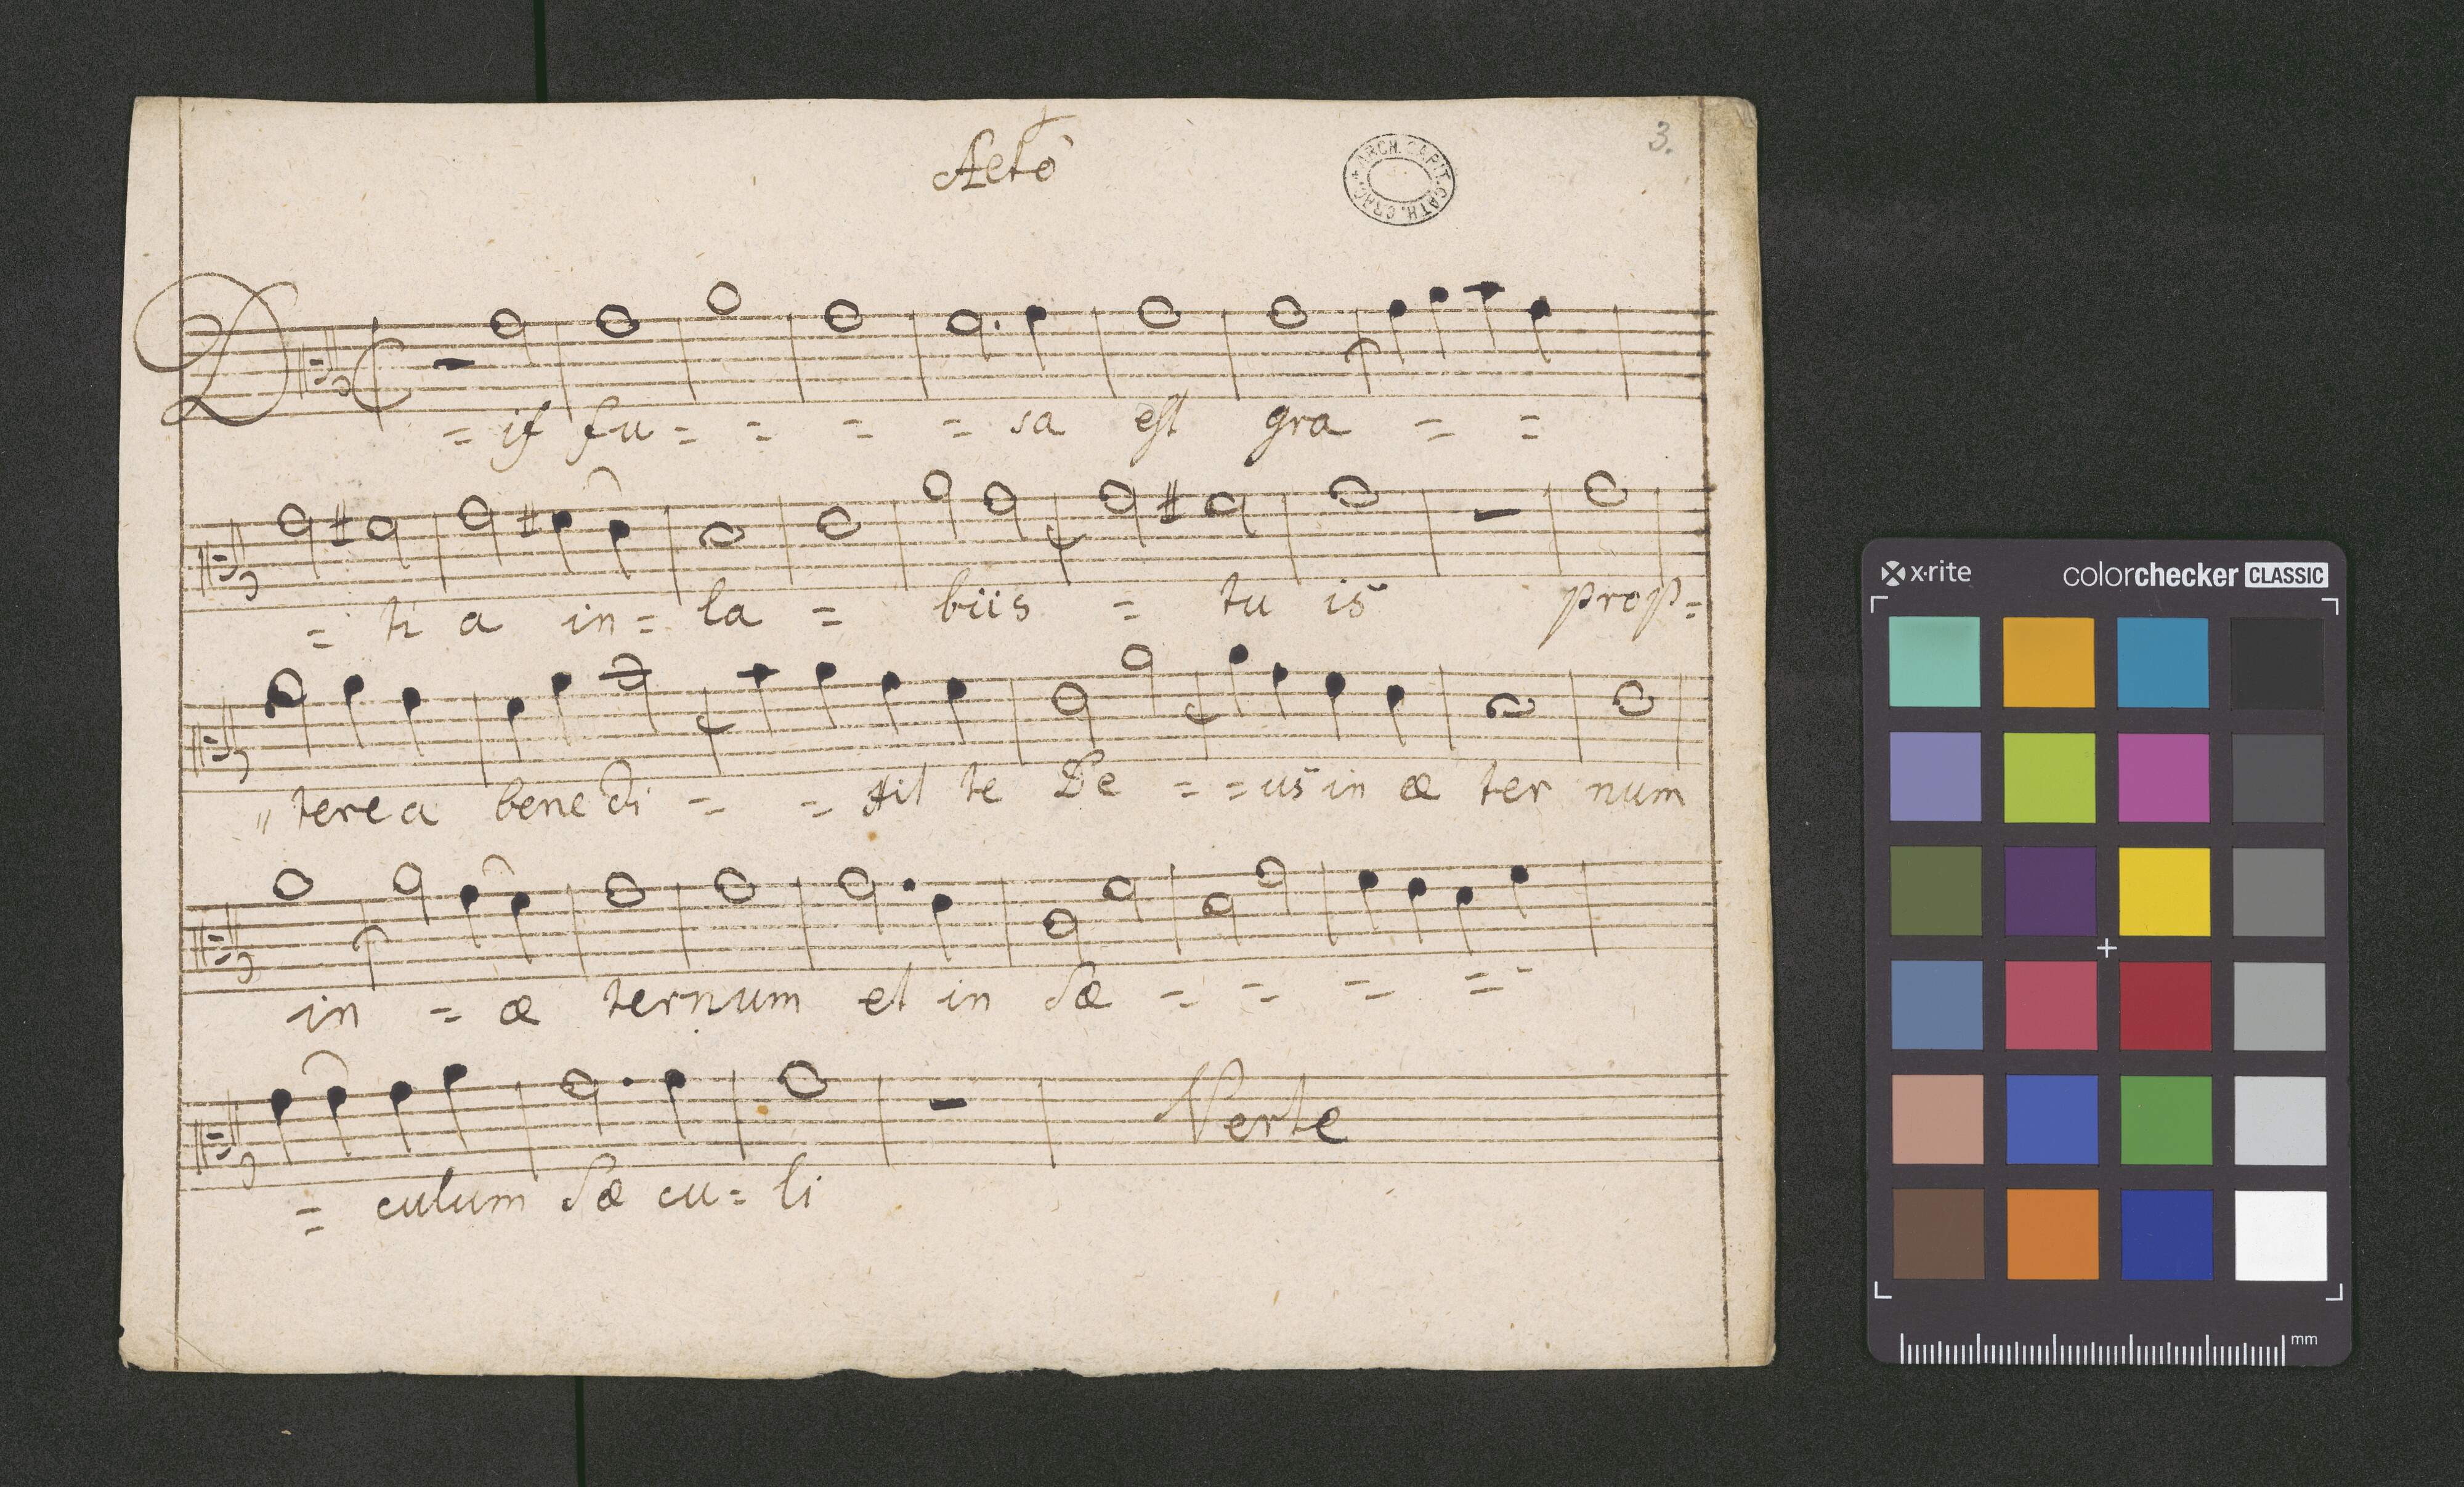 Alto
ARCH. CAPIT. CATH. CRAC.
3.
D = if fu = = = = sa est gra = =
= ti a in = la = biis = tu is prop =
" tere a bene di = = xit te De = = us in æ ter num
in = æ ternum et in sæ = = = =
Verte
= culum sæ cu = li
x·rite colorchecker CLASSIC
mm